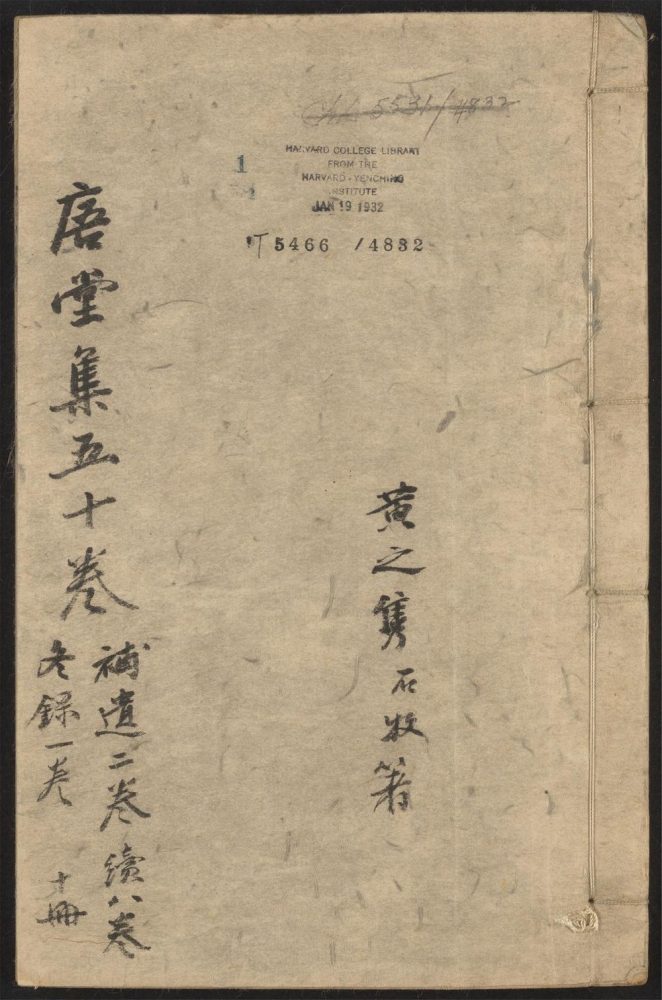 Ch.L 5531/4832
HARVARD COLLEGE LIBRARY
FROM THE
HARVARD-YENCHING
INSTITUTE
JAN 19 1932
T 5466 /4832
1
黄之雋石牧著
唐堂集五十卷
補遺二卷續八卷
冬録一卷 十冊